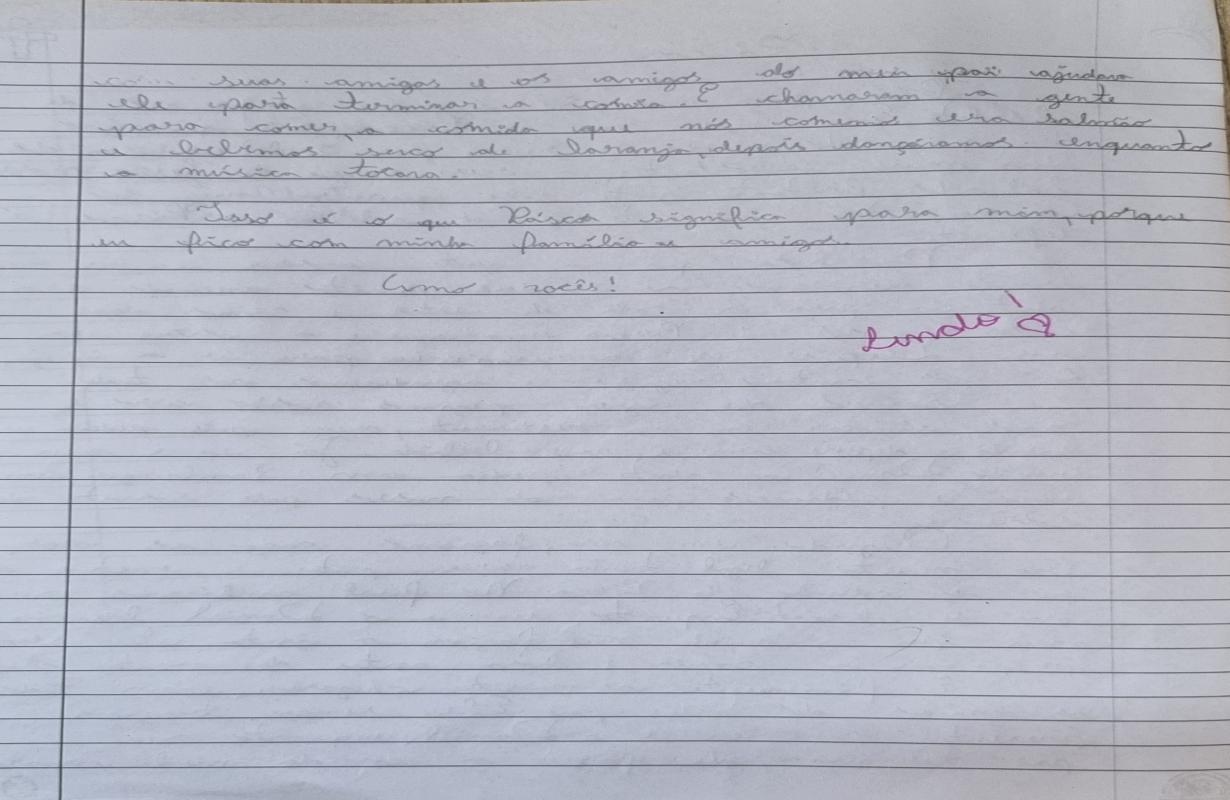 com suas amigas e os amigos do meu pai ajudara
ele para terminar a comia. E chamaram a gente
para comer, a comida que nós comemos era
e bebemos suco de laranja, depois dançaramos enquanto
a música tocava.
Isso é o que Páscoa significa para mim, porque
eu fico com minha família e amigos.
Amo vocês!
Lindo!